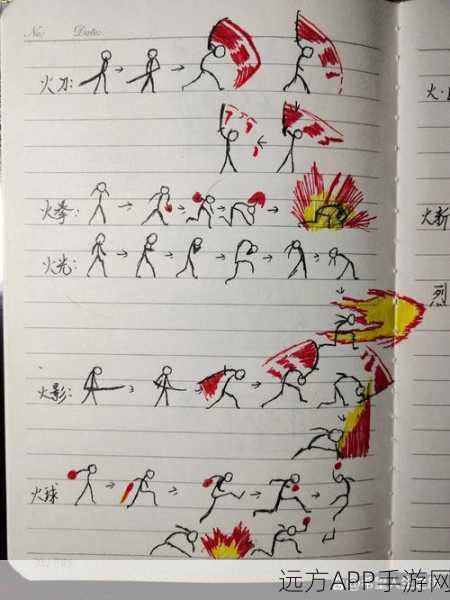 No: Date:
火刀:
火拳:
火光:
火影:
火球
火·
火新
烈
YU PIN
远方APP手游网